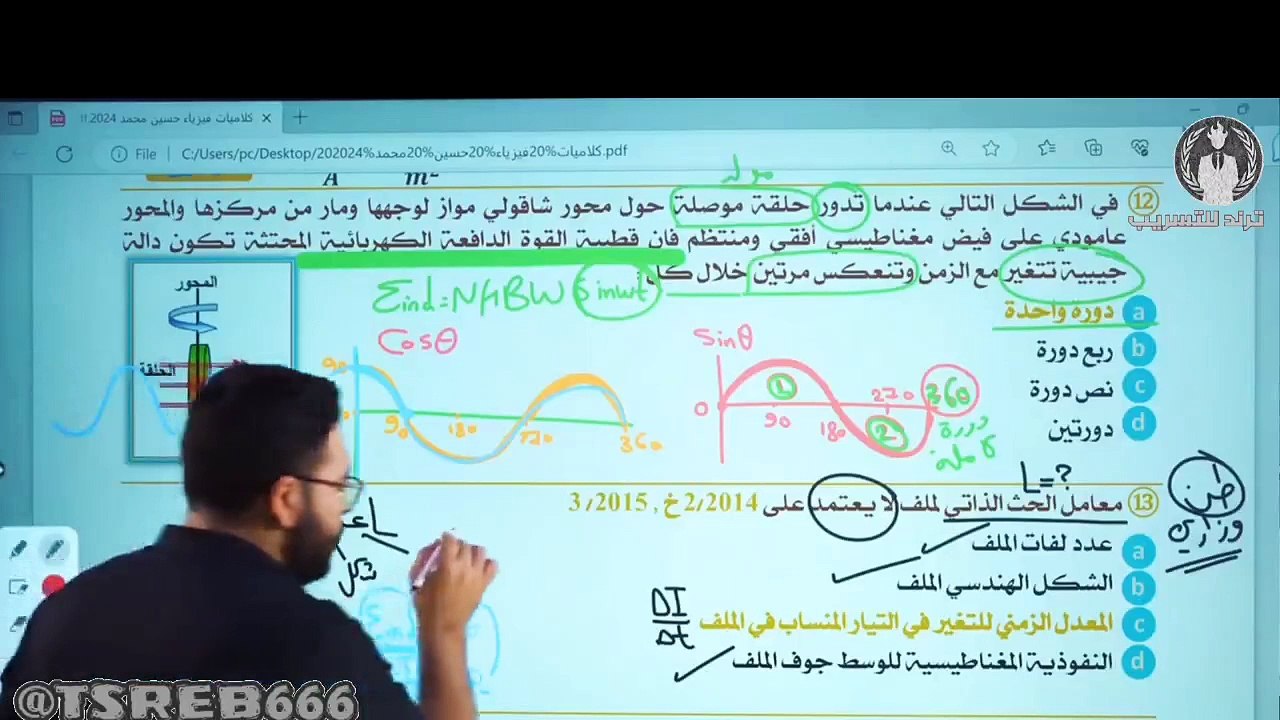 كلاميات فيزياء حسين محمد 2024.
File
C:/Users/pc/Desktop/202024%كلاميات%20فيزياء%20حسين%20محمد.pdf
A m²
تراند للتسريب
12 في الشكل التالي عندما تدور حلقة موصلة حول محور شاقولي مواز لوجهها ومار من مركزها والمحور
عامودي على فيض مغناطيسي أفقي ومنتظم فان قطبية القوة الدافعة الكهربائية المحتثة تكون دالة
جيبية تتغير مع الزمن وتنعكس مرتين خلال كل:
Eind=NABW Sinwt
a دورة واحدة
b ربع دورة
c نص دورة
d دورتين
المحور
الحلقة
Cosθ
90 180 270 360
Sinθ
0 90 180 270 360
1 2
دورة
كاملة
L=?
13 معامل الحث الذاتي لملف لا يعتمد على 2/2014 خ , 3/2015
وزاري
a عدد لفات الملف
b الشكل الهندسي الملف
c المعدل الزمني للتغير في التيار المنساب في الملف
ΔI
Δt
d النفوذية المغناطيسية للوسط جوف الملف
شكل
@TSREB666